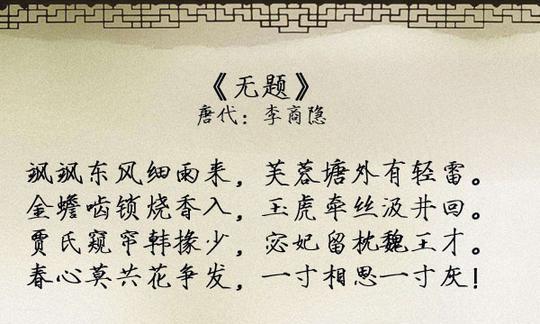 《无题》
唐代：李商隐
飒飒东风细雨来，芙蓉塘外有轻雷。
金蟾啮锁烧香入，玉虎牵丝汲井回。
贾氏窥帘韩掾少，宓妃留枕魏王才。
春心莫共花争发，一寸相思一寸灰！